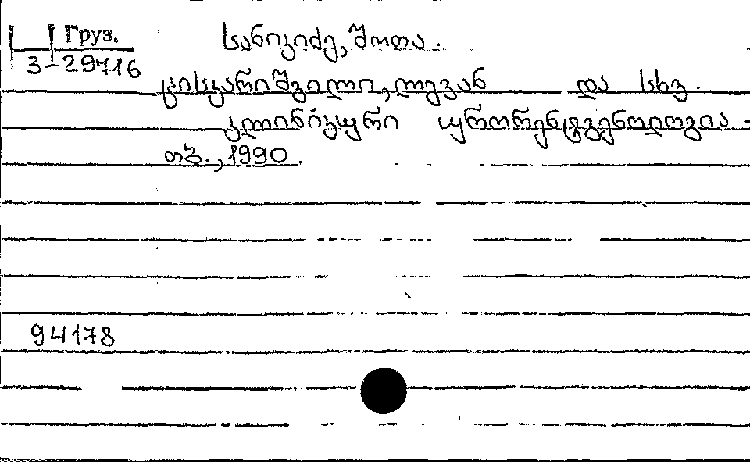 Груз.
3-29716
სანიკიძე, შოთა.
ცისკარიშვილი, ლევან და სხვ.
კლინიკური ურორენტგენოლოგია -
თბ., 1990.
94178